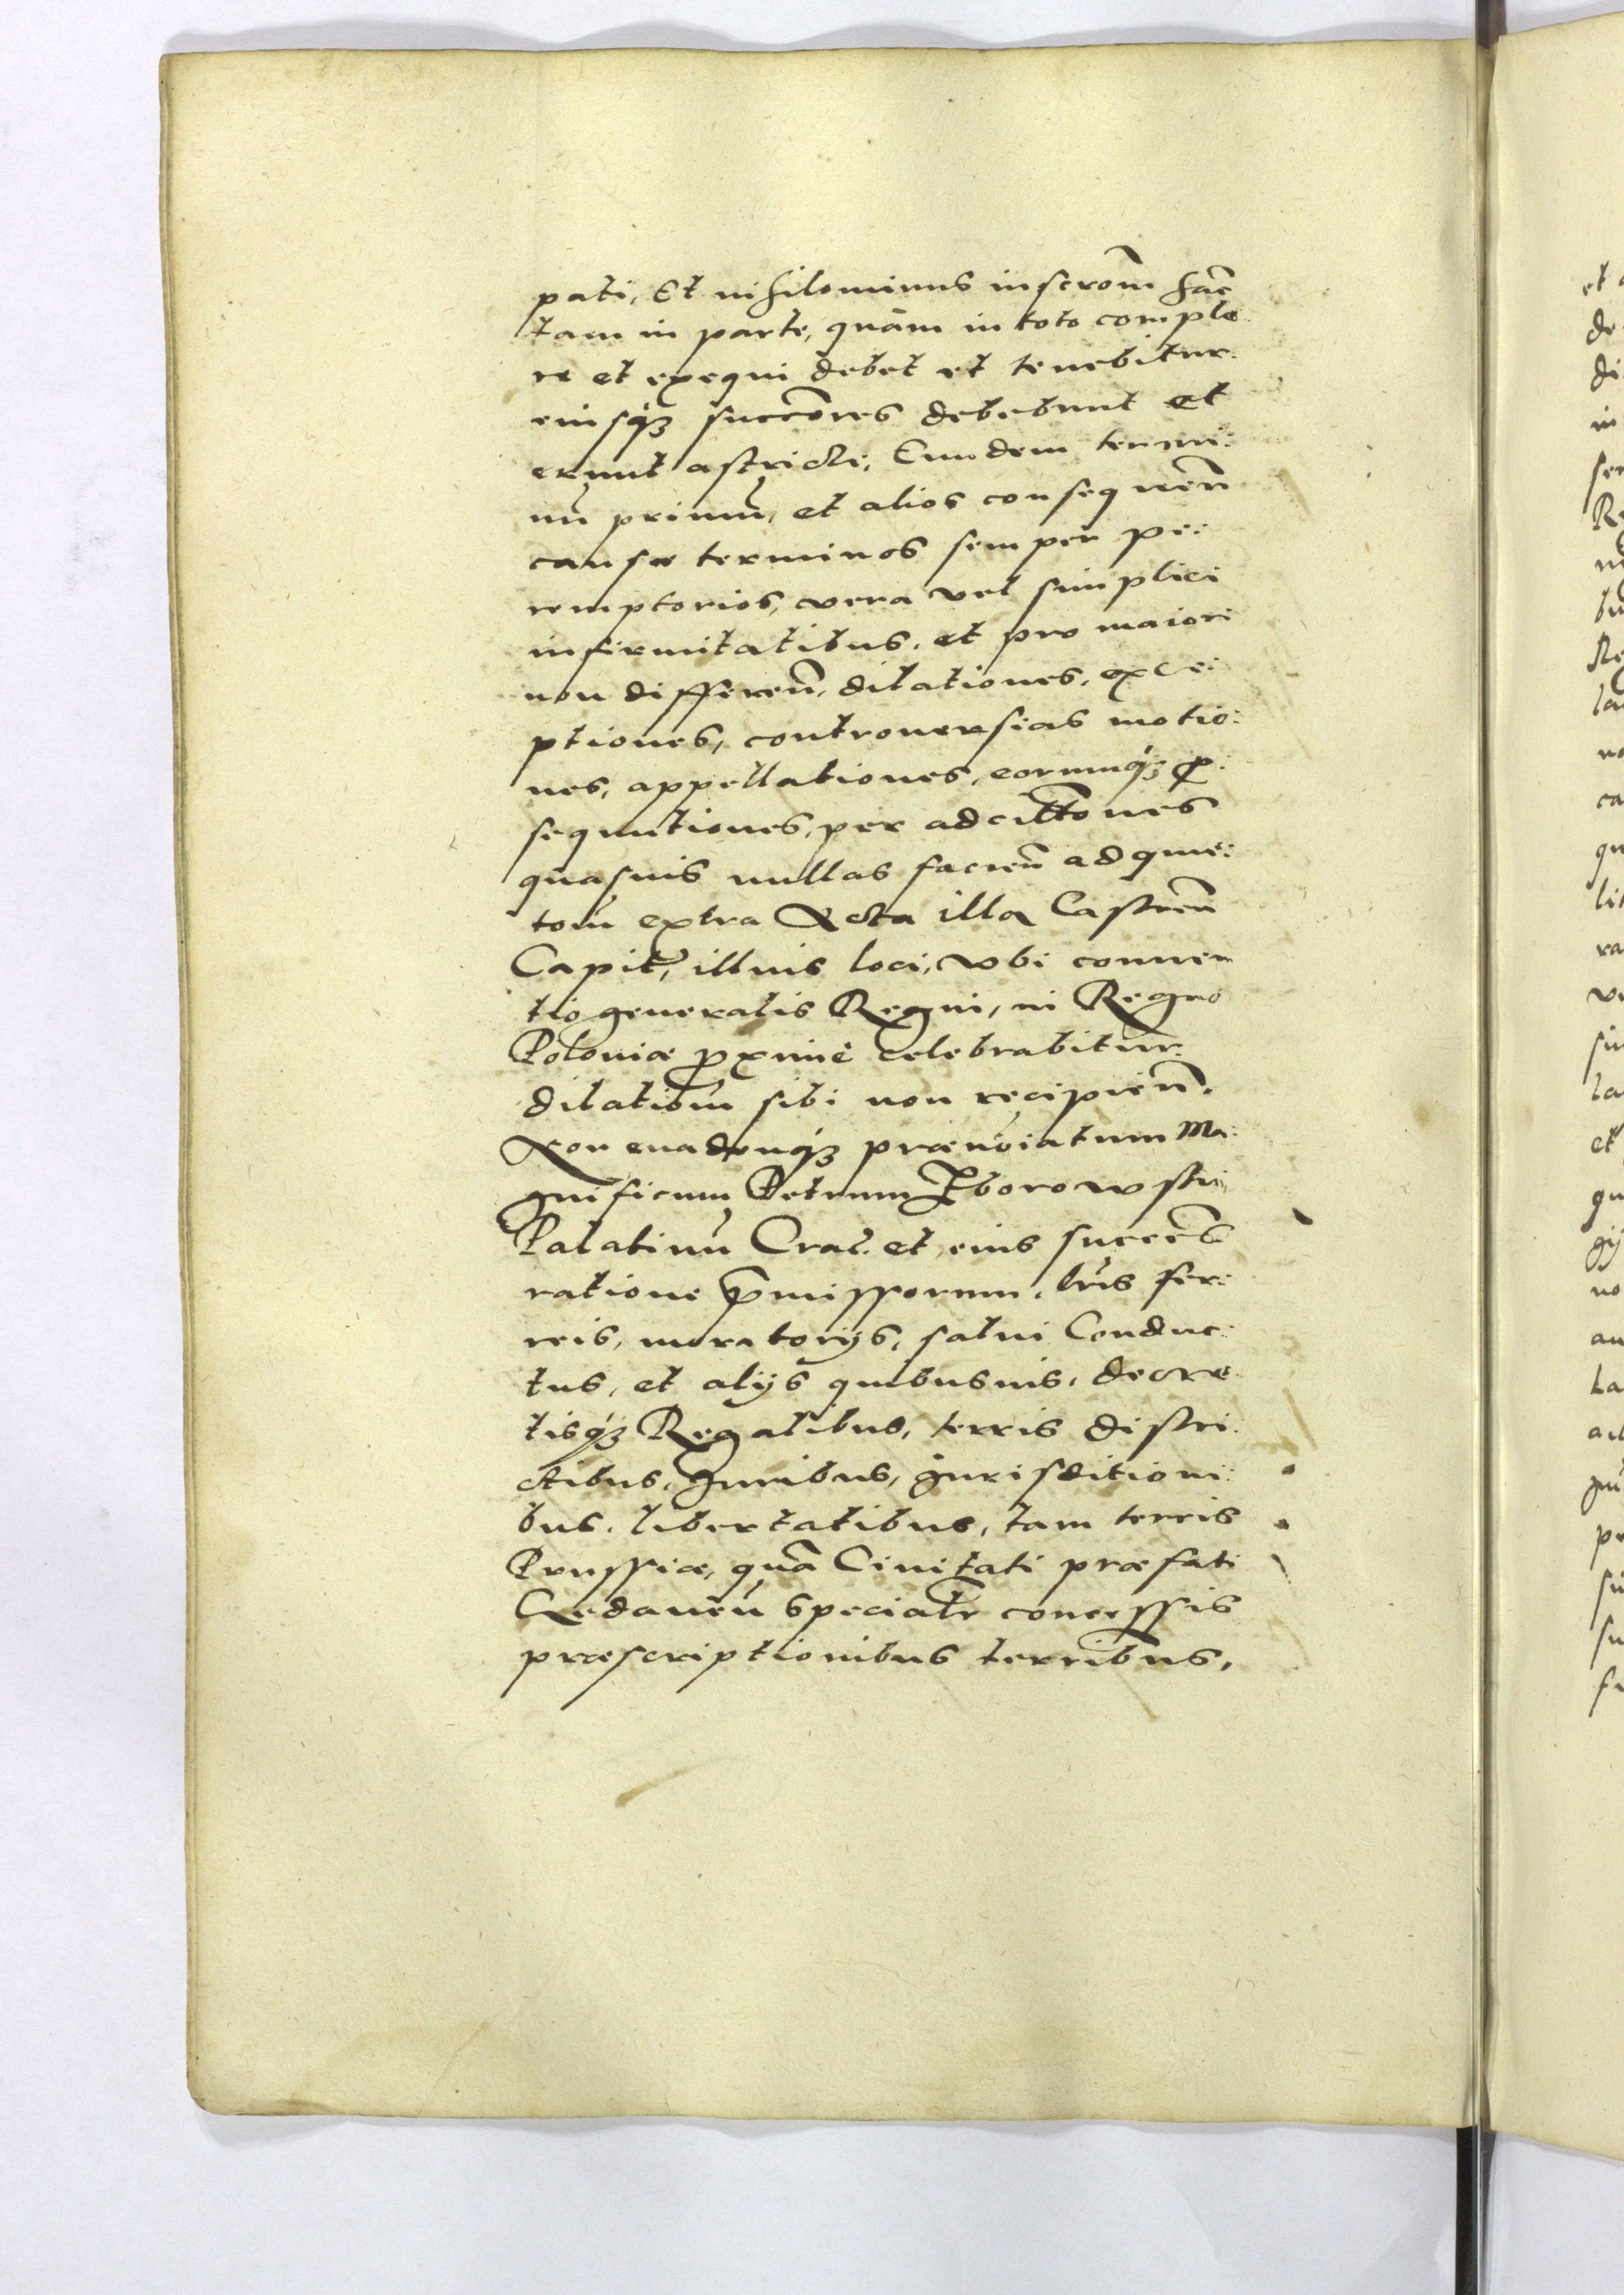 pati, Et nihilominus inscrõm hãc
tam in parte, quàm in toto comple
re et exequi debet et tenebitur.
eiusq́ʒ succõres debebunt et
erunt astricti, Eundem termi:
nũ primũ, et alios consequen̄
causæ terminos semper pe:
remptorios, vera vel simplici
infirmitatibus, et pro maiori
non differen̄, dilationes, exce:
ptiones, controuersias motio:
nes, appellationes, eorumq́ʒ ꝓ:
sequutiones, per adcit̃tones
quasuis nullas facien̄ adque:
tom̃ extra Acta illa Castren̄
Capit̃, illius loci, vbi conuen
tio generalis Regni, in Regno
Poloniæ ꝓximè celebrabitur.
dilation̄ sibi non recipien̄.
Non euadenq́ʒ prænoiatum Ma:
gnificum Petrum Zborowski,
Palatinũ Crac. et eius succẽs
ratione p̃missorum, lr̃is fer:
reis, moratorijs, salui Conduc:
tus, et alijs quibusuis, decre
tisq́ʒ Regalibus, terris distri
ctibus, Juribus, jurisditioni:
bus, libertatibus, tam terris
Prussiæ, quã Ciuitati præfati
Gedanen̄ specialr̃ concessis
præscriptionibus terribus,